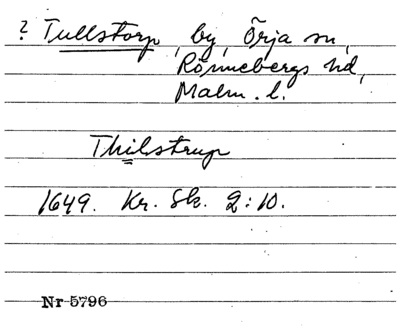 ? Tullstorp, by, Örja sn,
Rönnebergs hd,
Malm. l.
Thilstrup
1649. Kr. Sk. 2:10.
Nr 5796